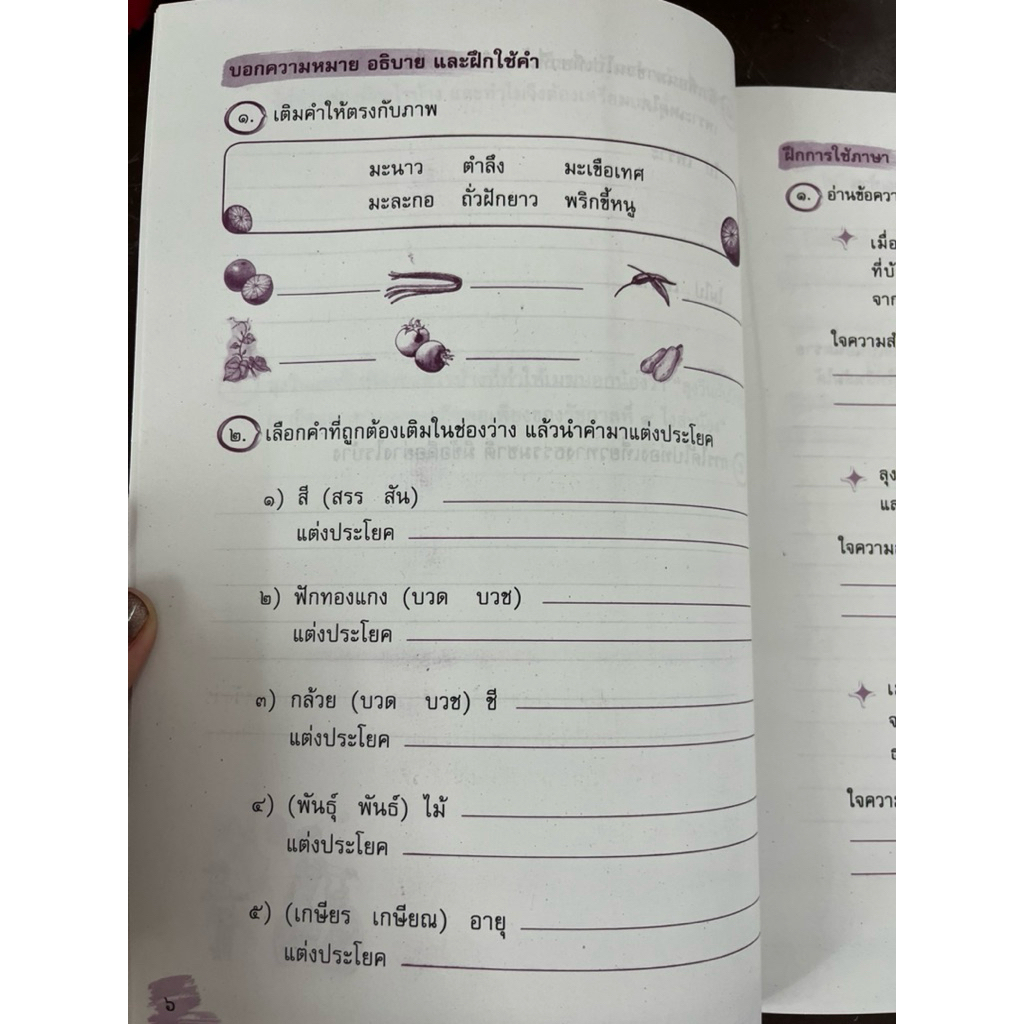 บอกความหมาย อธิบาย และฝึกใช้คำ
๑. เติมคำให้ตรงกับภาพ
มะนาว ตำลึง มะเขือเทศ
มะละกอ ถั่วฝักยาว พริกขี้หนู
๒. เลือกคำที่ถูกต้องเติมในช่องว่าง แล้วนำคำมาแต่งประโยค
๑) สี (สรร สัน)
แต่งประโยค
๒) ฟักทองแกง (บวด บวช)
แต่งประโยค
๓) กล้วย (บวด บวช) ชี
แต่งประโยค
๔) (พันธุ์ พันธ์) ไม้
แต่งประโยค
๕) (เกษียร เกษียณ) อายุ
แต่งประโยค
๖
ฝึกการใช้ภาษา
๑. อ่านข้อควา
เมื่อ
ที่บ้
จาก
ใจความส
ลุง
แล
ใจความ
จ
ใจความ